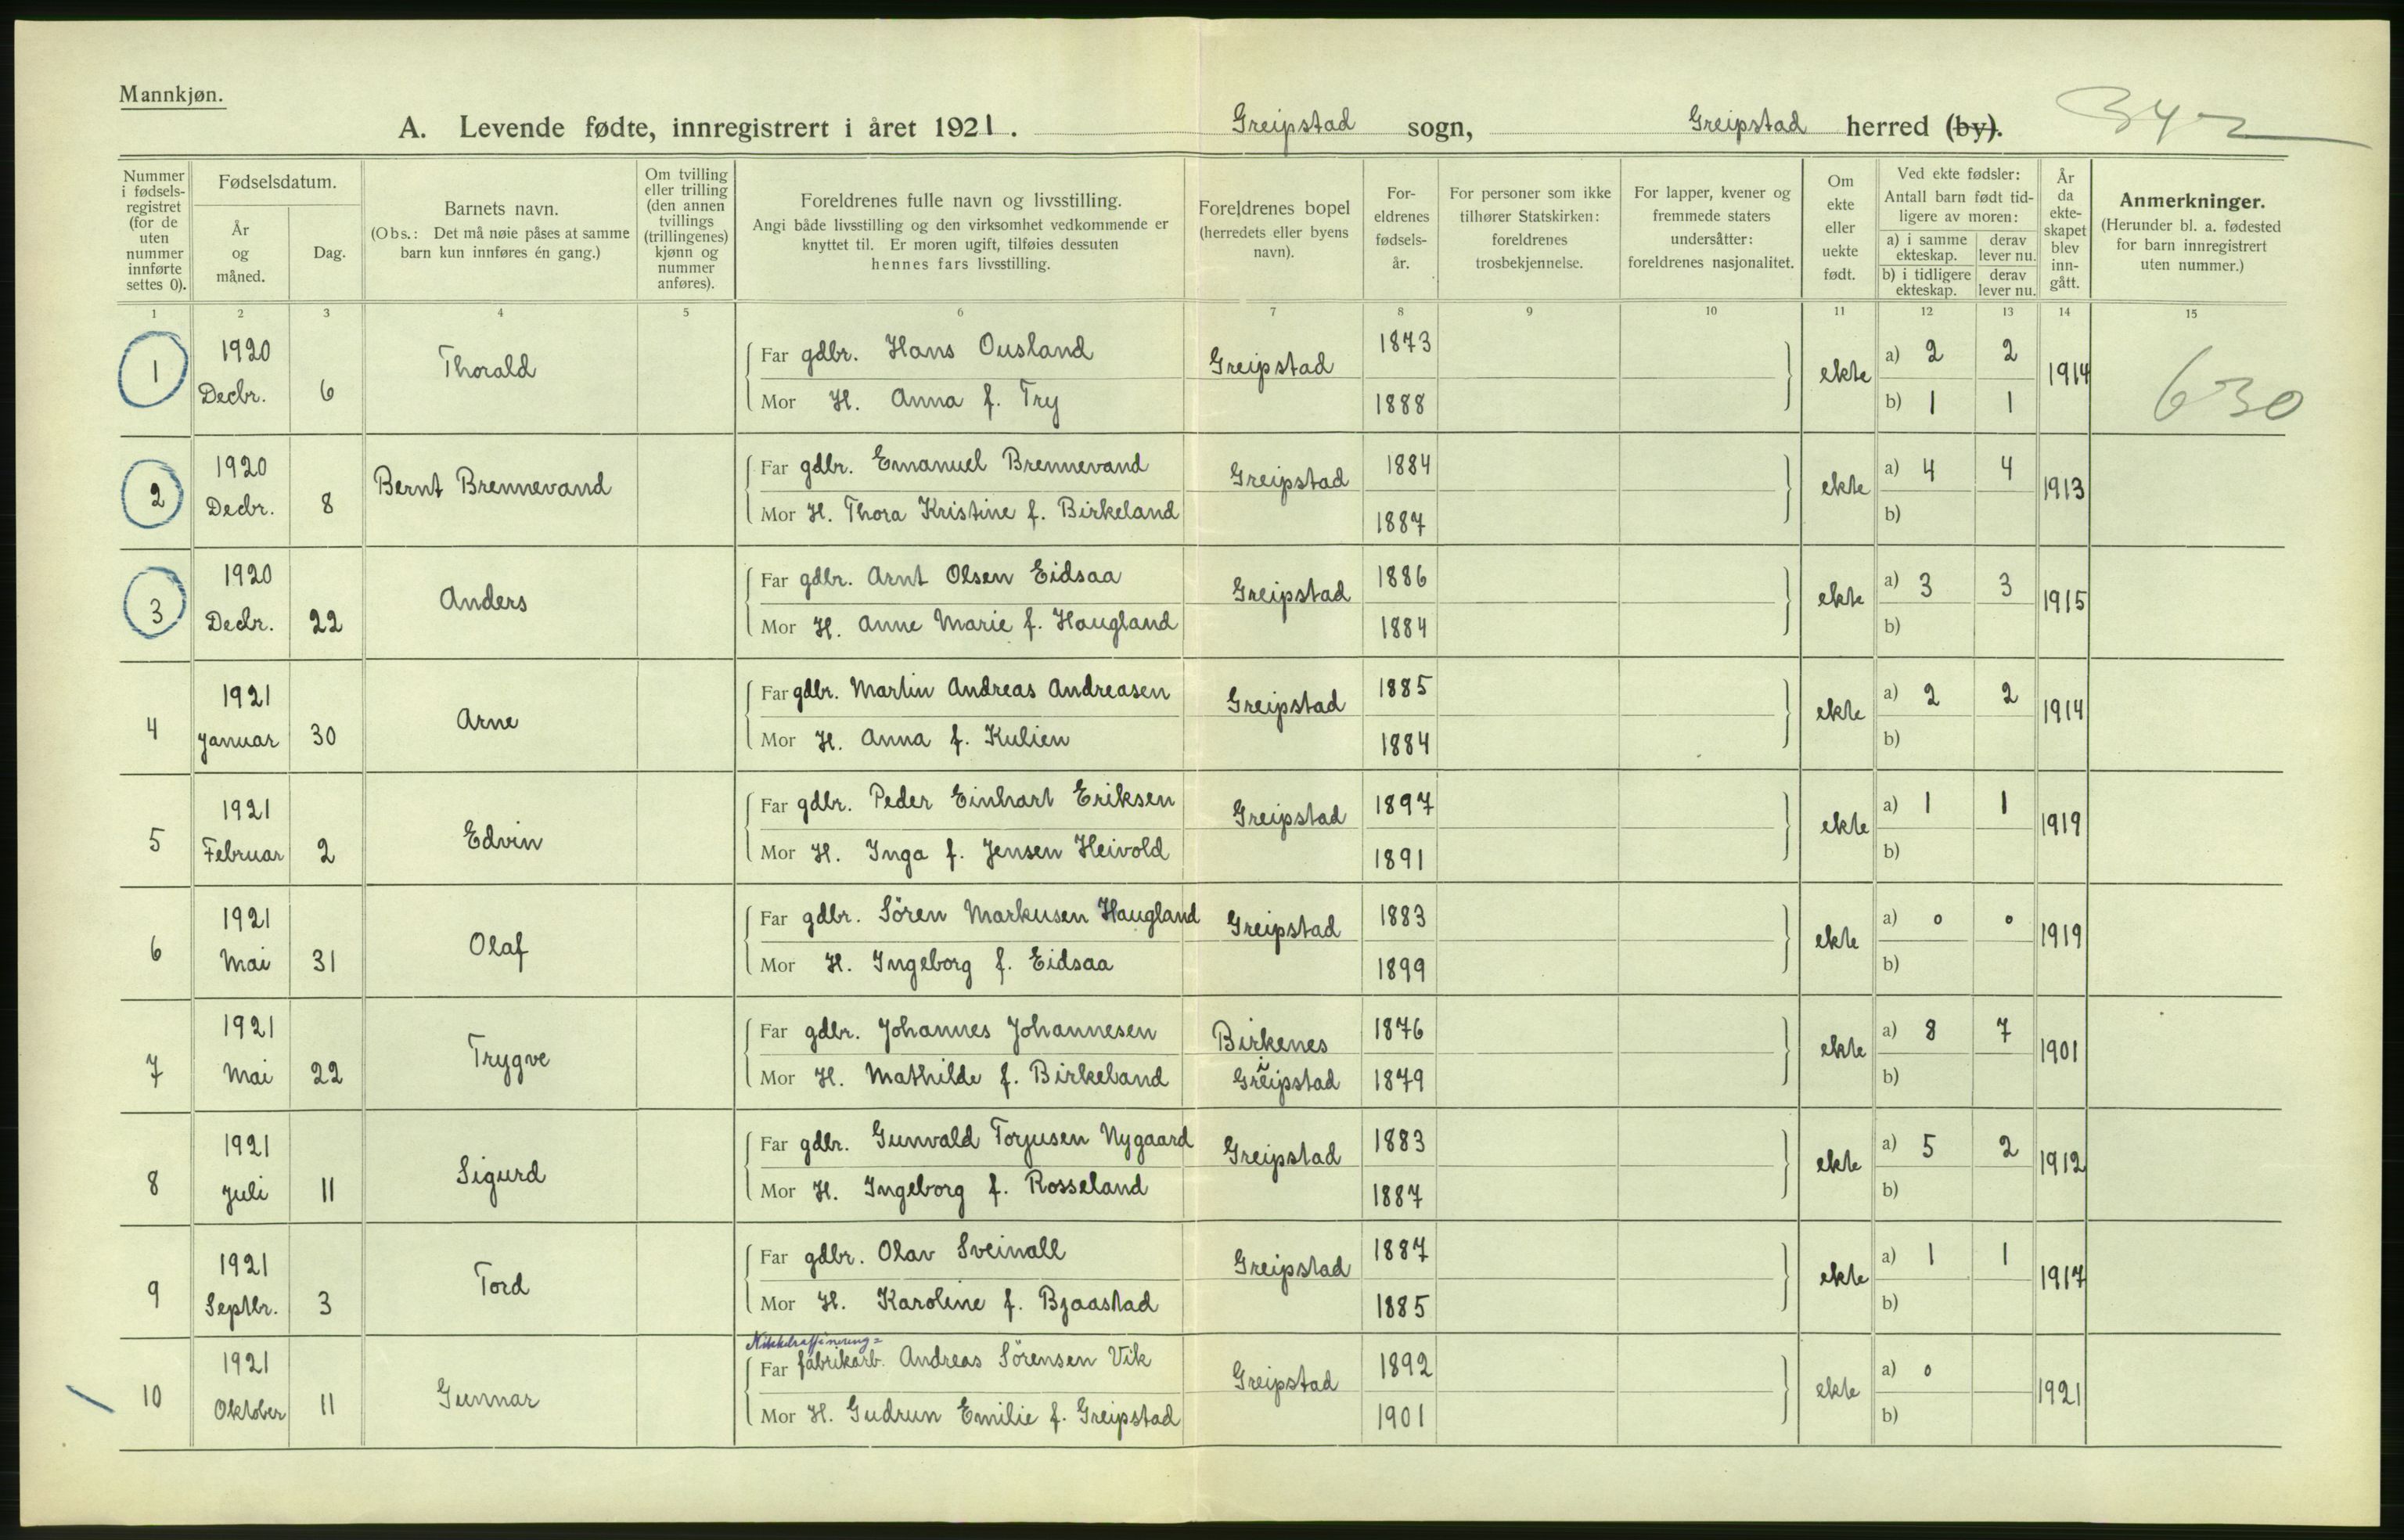 Mannkjøn.
A. Levende fødte, innregistrert i året 1921. Greipstad sogn, Greipstad herred (by).
Nummer i fødsels-registret (for de uten nummer innførte settes 0).
Fødselsdatum.
År og måned.
Dag.
Barnets navn.
(Obs.: Det må nøie påses at samme barn kun innføres én gang.)
Om tvilling eller trilling (den annen tvillings (trillingenes) kjønn og nummer anføres).
Foreldrenes fulle navn og livsstilling.
Angi både livsstilling og den virksomhet vedkommende er knyttet til. Er moren ugift, tilføies dessuten hennes fars livsstilling.
Foreldrenes bopel (herredets eller byens navn).
For-eldrenes fødsels-år.
For personer som ikke tilhører Statskirken: foreldrenes trosbekjennelse.
For lapper, kvener og fremmede staters undersåtter: foreldrenes nasjonalitet.
Om ekte eller uekte født.
Ved ekte fødsler:
Antall barn født tid-ligere av moren:
a) i samme ekteskap. derav lever nu.
b) i tidligere ekteskap. derav lever nu.
År da ekte-skapet blev inn-gått.
Anmerkninger.
(Herunder bl. a. fødested for barn innregistrert uten nummer.)
1 2 3 4 5 6 7 8 9 10 11 12 13 14 15
1 1920 Decbr. 6 Thorald Far gdbr. Hans Ousland Greipstad 1873 ekte a) 2 2 1914 630
Mor H. Anna f. Try 1888 b) 1 1
2 1920 Decbr. 8 Bernt Brennevand Far gdbr. Emanuel Brennevand Greipstad 1884 ekte a) 4 4 1913
Mor H. Thora Kristine f. Birkeland 1887 b)
3 1920 Decbr. 22 Anders Far gdbr. Arnt Olsen Eidsaa Greipstad 1886 ekte a) 3 3 1915
Mor H. Anne Marie f. Haugland 1884 b)
4 1921 Januar 30 Arne Far gdbr. Martin Andreas Andreasen Greipstad 1885 ekte a) 2 2 1914
Mor H. Anna f. Kulien 1884 b)
5 1921 Februar 2 Edvin Far gdbr. Peder Einhart Eriksen Greipstad 1897 ekte a) 1 1 1919
Mor H. Inga f. Jensen Heivold 1891 b)
6 1921 Mai 31 Olaf Far gdbr. Sören Markusen Haugland Greipstad 1883 ekte a) 0 0 1919
Mor H. Ingeborg f. Eidsaa 1899 b)
7 1921 Mai 22 Trygve Far gdbr. Johannes Johannesen Birkenes i Greipstad 1876 ekte a) 8 7 1901
Mor H. Mathilde f. Birkeland 1879 b)
8 1921 Juli 11 Sigurd Far gdbr. Gunvald Torjusen Nygaard Greipstad 1883 ekte a) 5 2 1912
Mor H. Ingeborg f. Rosseland 1887 b)
9 1921 Septbr. 3 Tord Far gdbr. Olav Sveinall Greipstad 1887 ekte a) 1 1 1917
Mor H. Karoline f. Bjaastad 1885 b)
Nikkelraffinering=
10 1921 Oktober 11 Gunnar Far fabrikarb. Andreas Sörensen Vik Greipstad 1892 ekte a) 0 1921
Mor H. Gudrun Emilie f. Greipstad 1901 b)